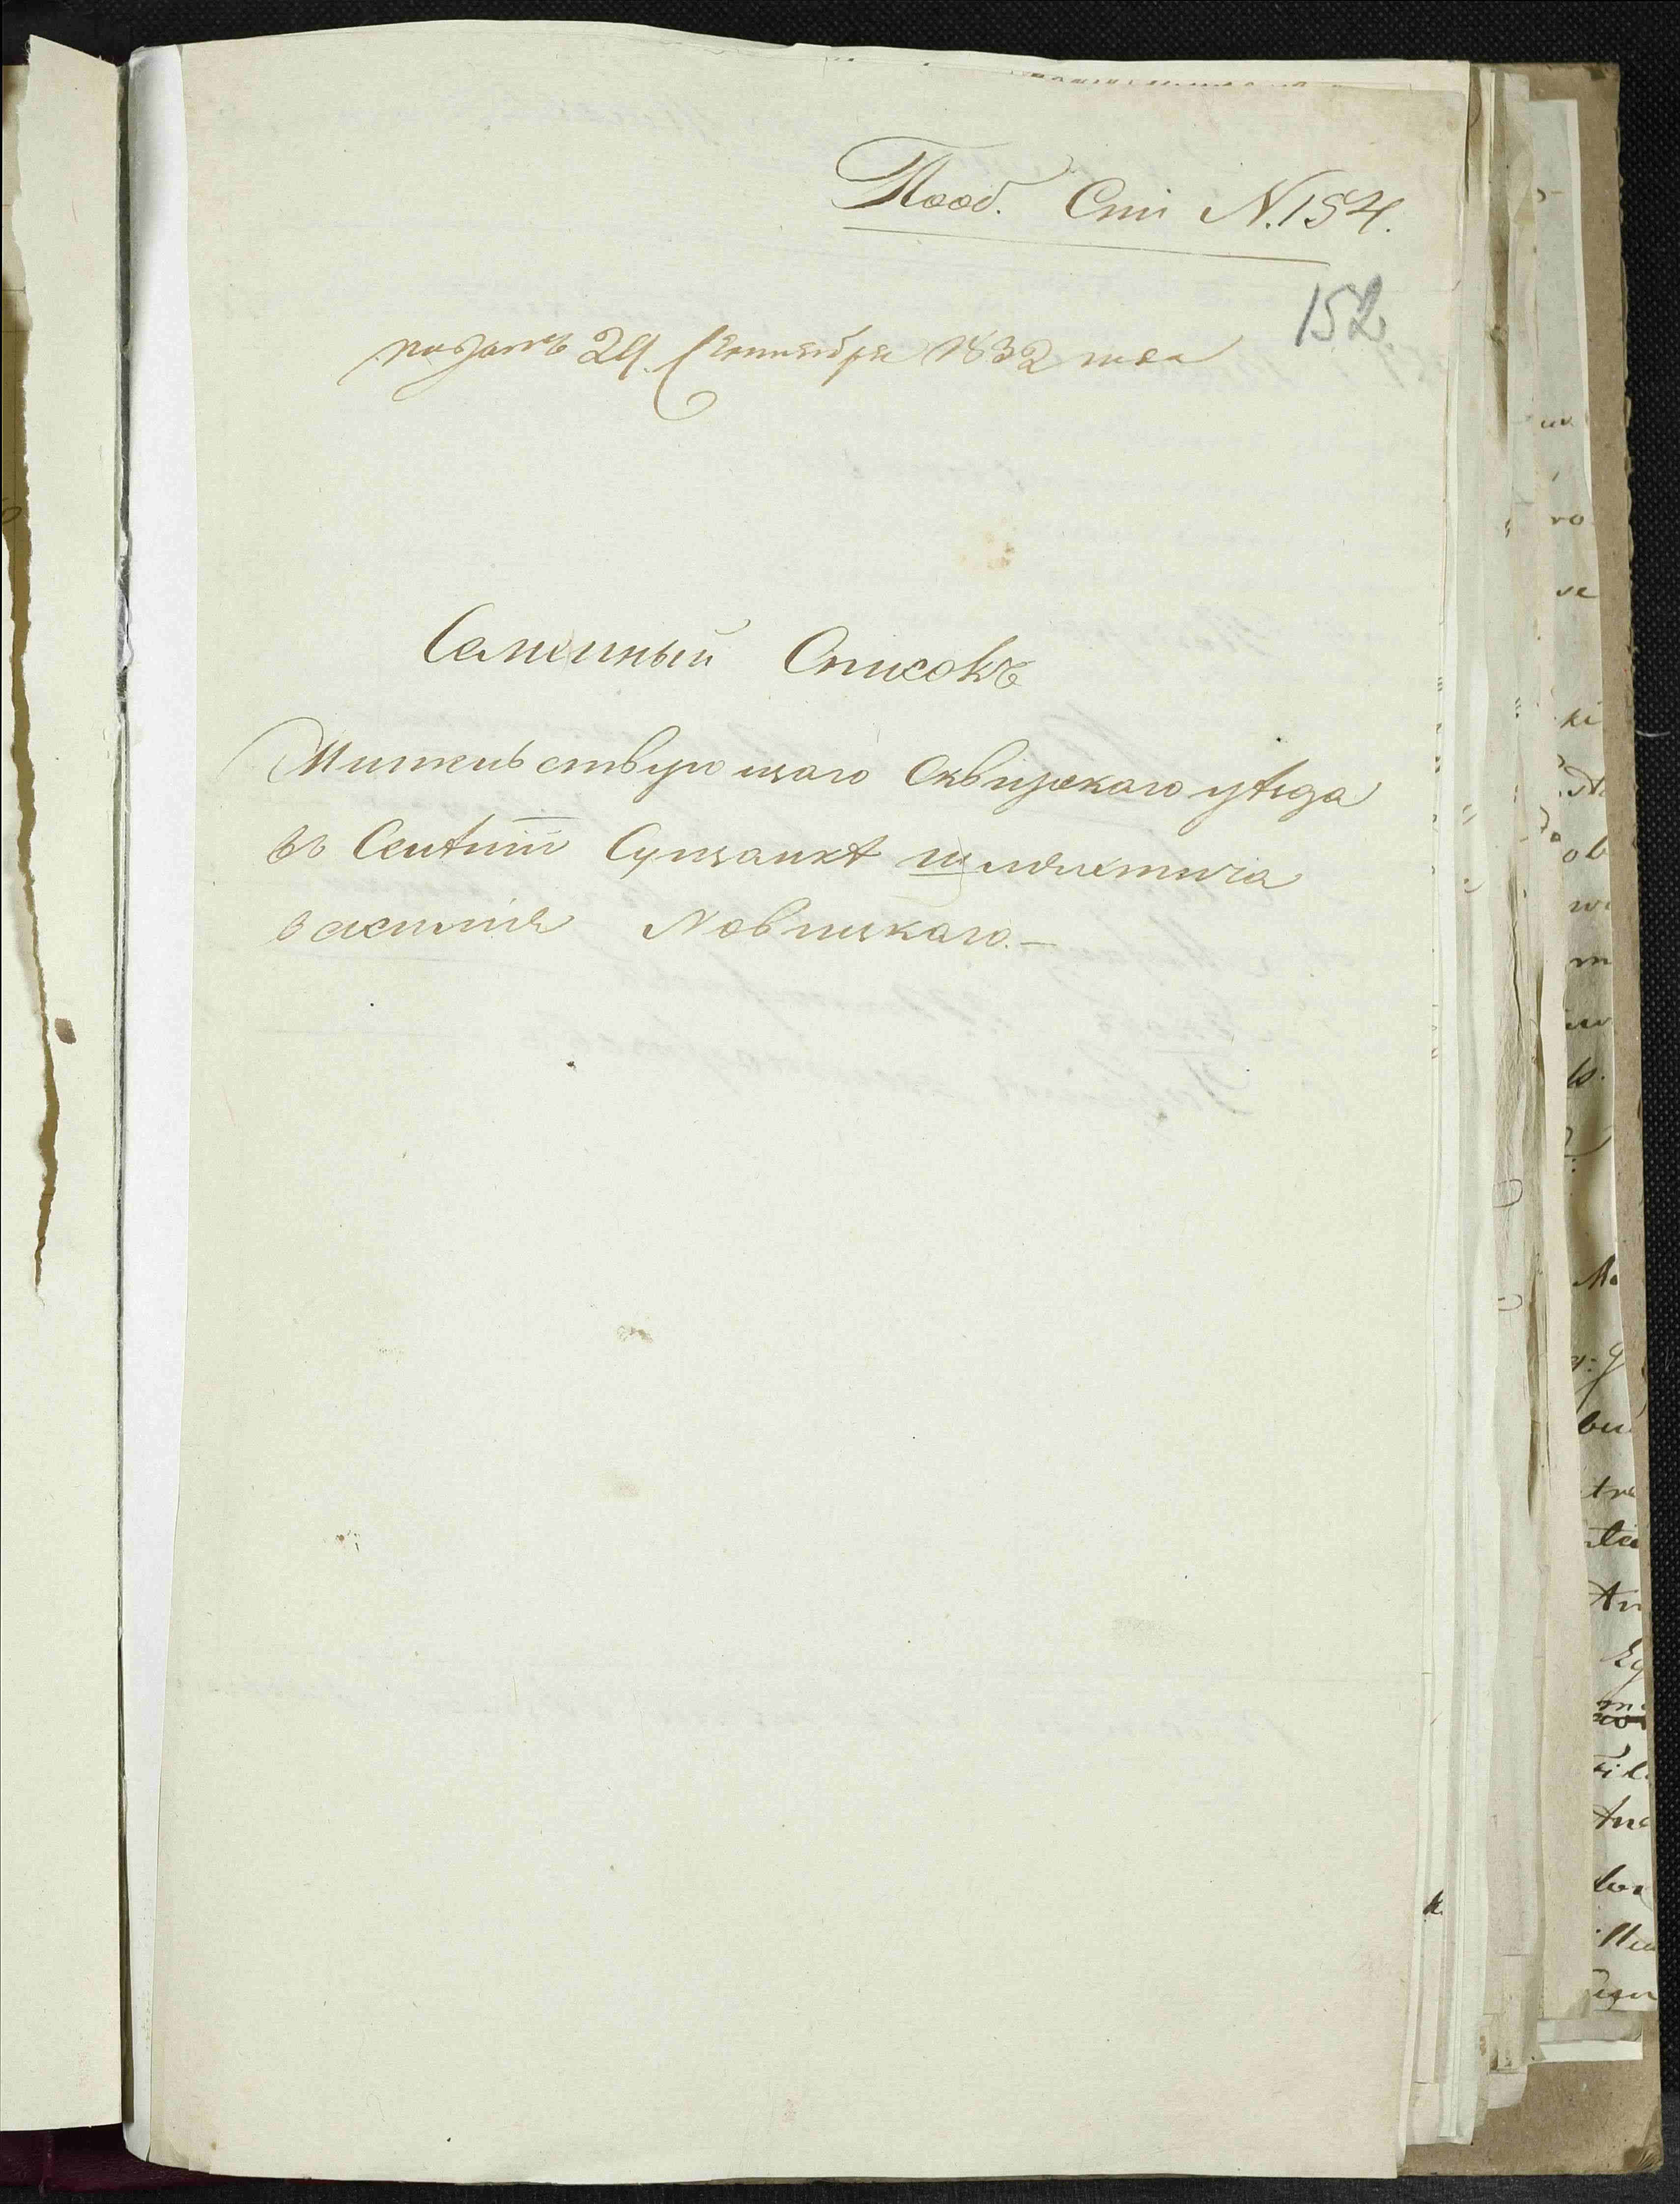 Пооб. Сти N. 154.
152
поданъ 29. Сентября 1832 года
Семейный Списокъ
Жительствующаго Сквирскаго уѣзда
въ Селѣнiи шляхтича
василия Новицкаго.—